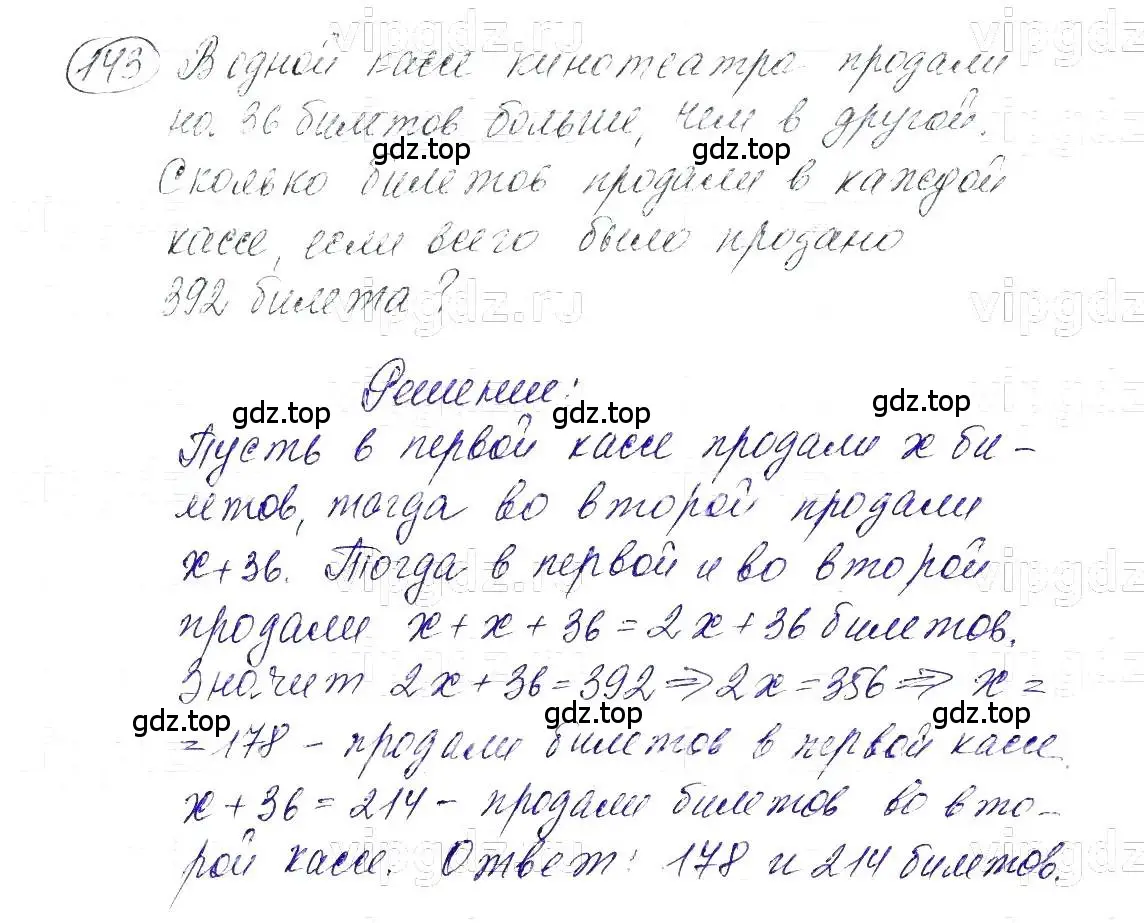 143 В одной кассе кинотеатра продали
на 36 билетов больше, чем в другой.
Сколько билетов продали в каждой
кассе, если всего было продано
392 билета?
Решение:
Пусть в первой кассе продали x би-
летов, тогда во второй продали
x+36. Тогда в первой и во второй
продали x+x+36=2x+36 билетов.
Значит 2x+36=392⇒2x=356⇒x=
=178 - продали билетов в первой кассе.
x+36=214 - продали билетов во вто-
рой кассе. Ответ: 178 и 214 билетов.
vipgdz.ru
vipgdz
gdz.top
gdz.top
gdz.top
gdz.top
gdz.top
gdz.top
gdz.top
gdz.top